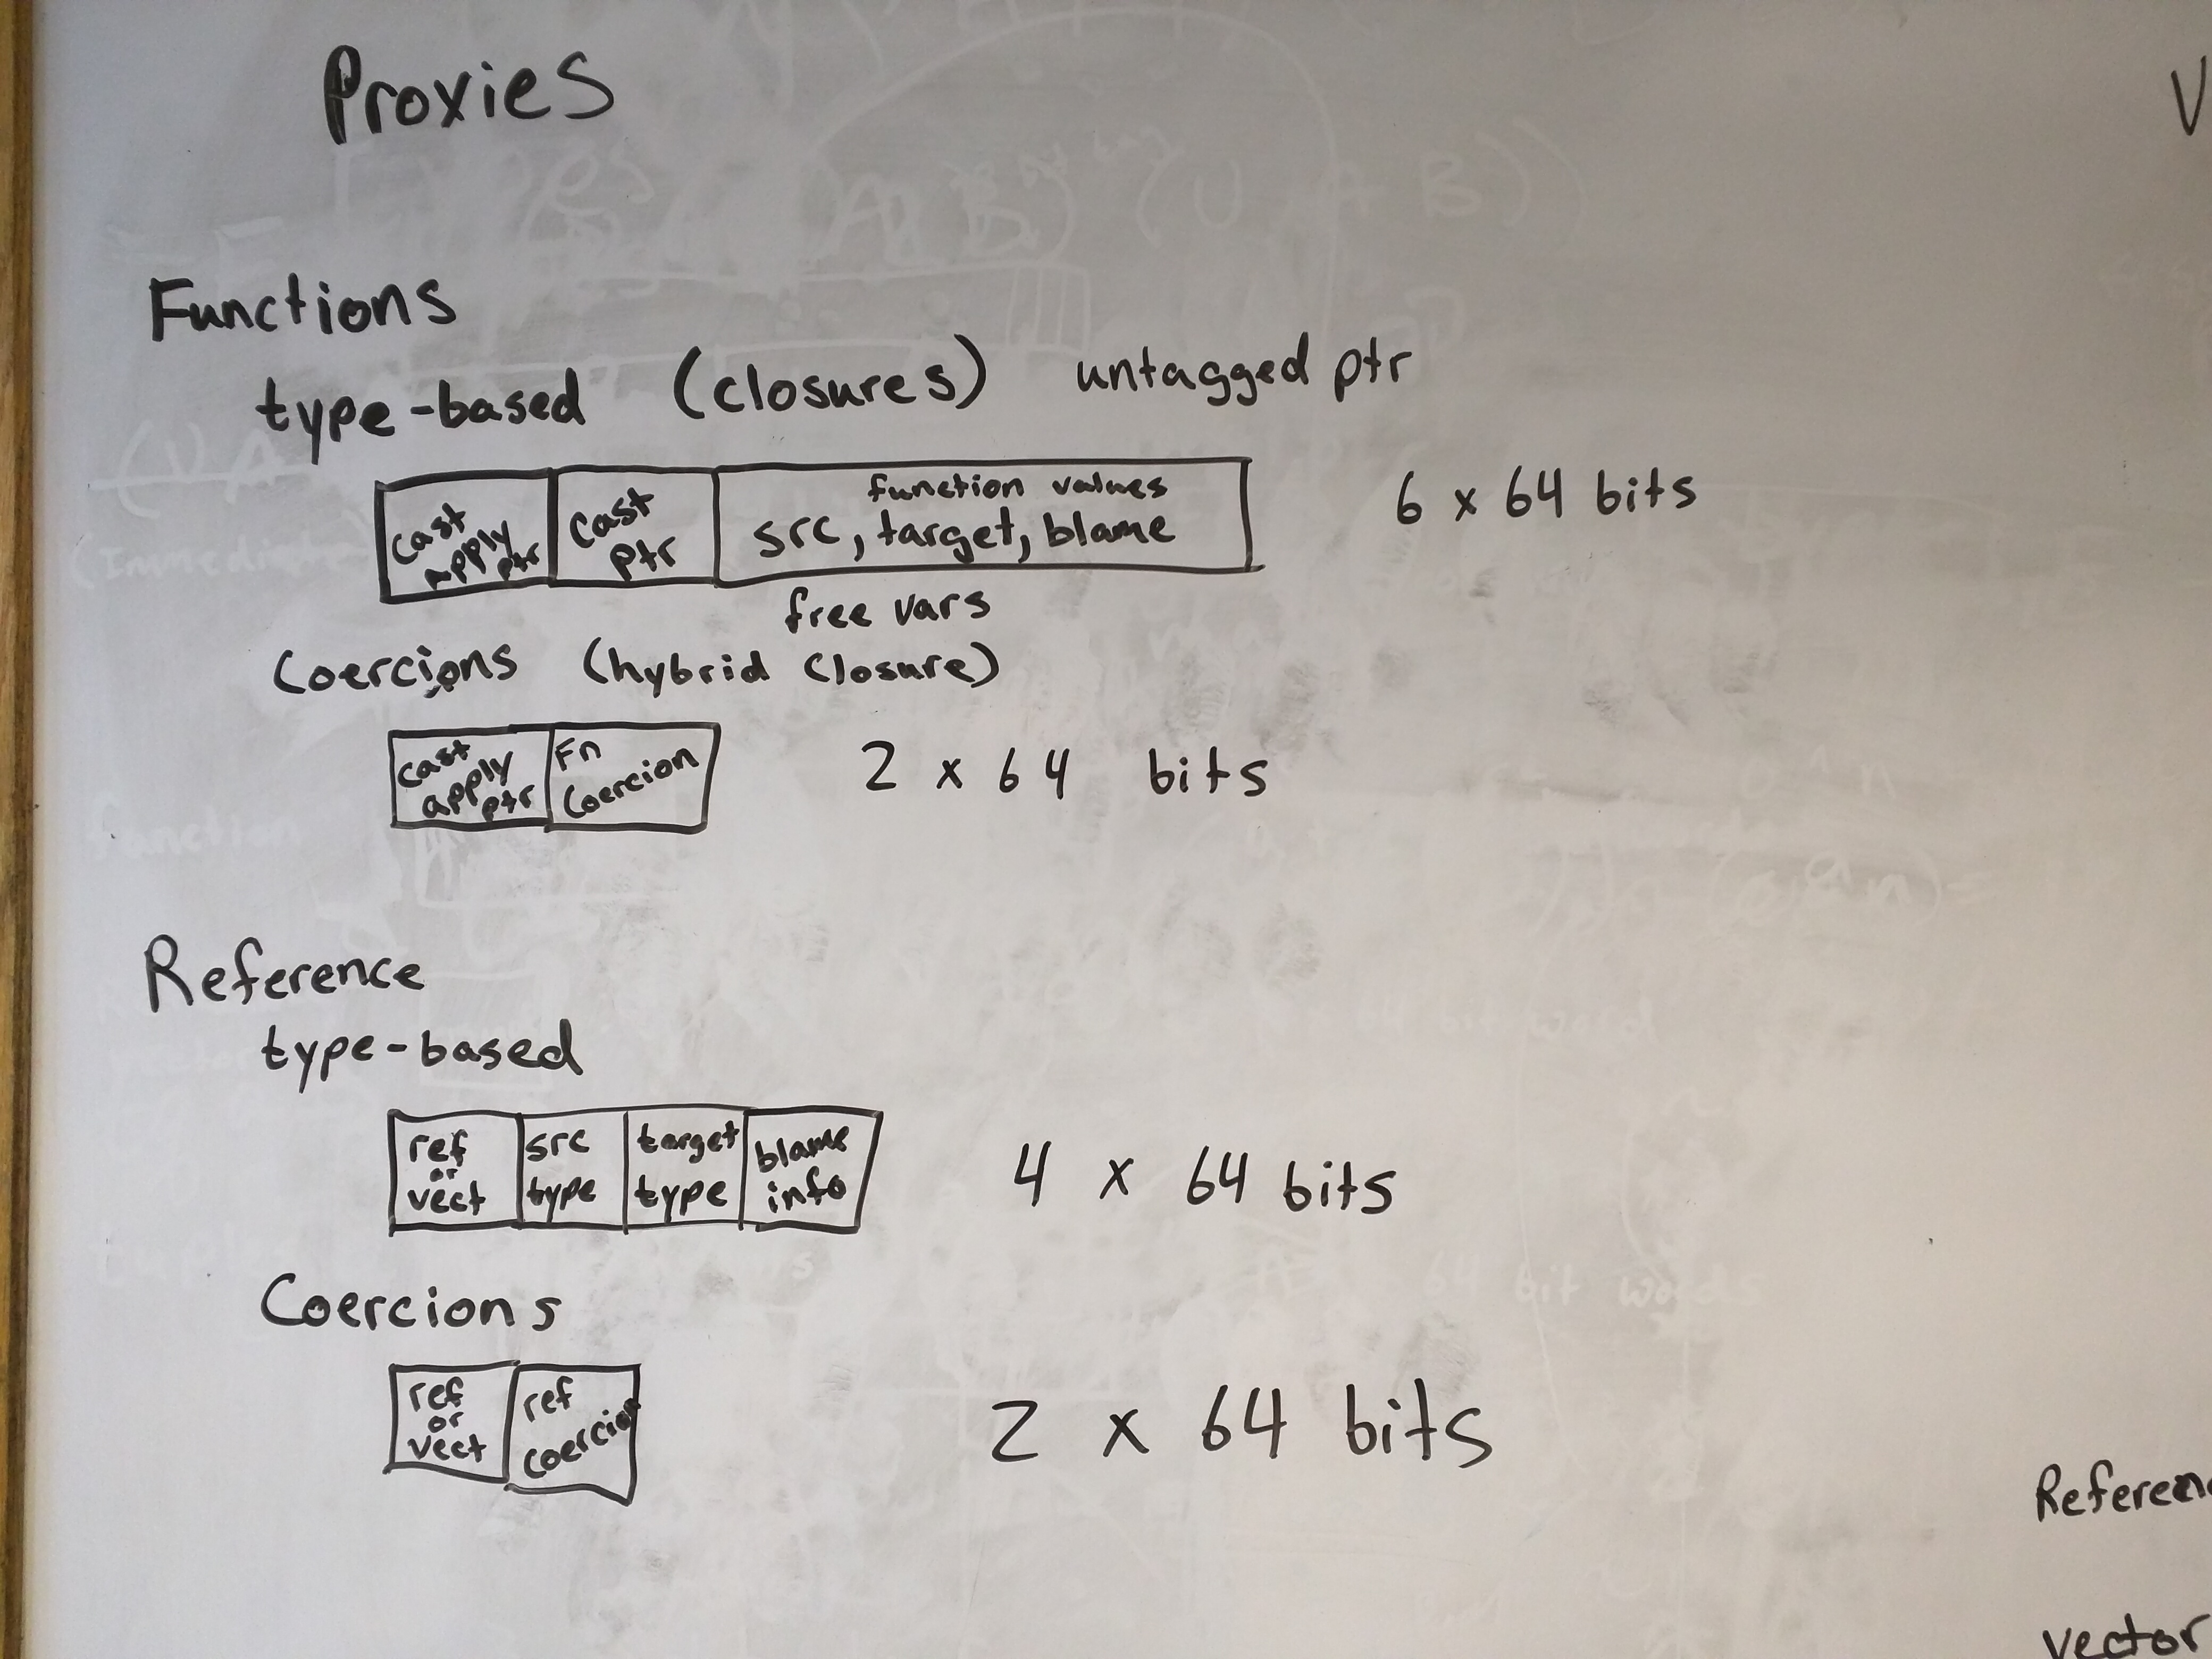 Proxies
V
Functions
type-based (closures) untagged ptr
cast apply ptr
cast ptr
function values
src, target, blame
6 x 64 bits
free vars
Coercions (hybrid closure)
cast apply ptr
Fn Coercion
2 x 64 bits
Reference
type-based
ref or vect
src type
target type
blame info
4 x 64 bits
Coercions
ref or vect
ref coercion
2 x 64 bits
Referen
vector